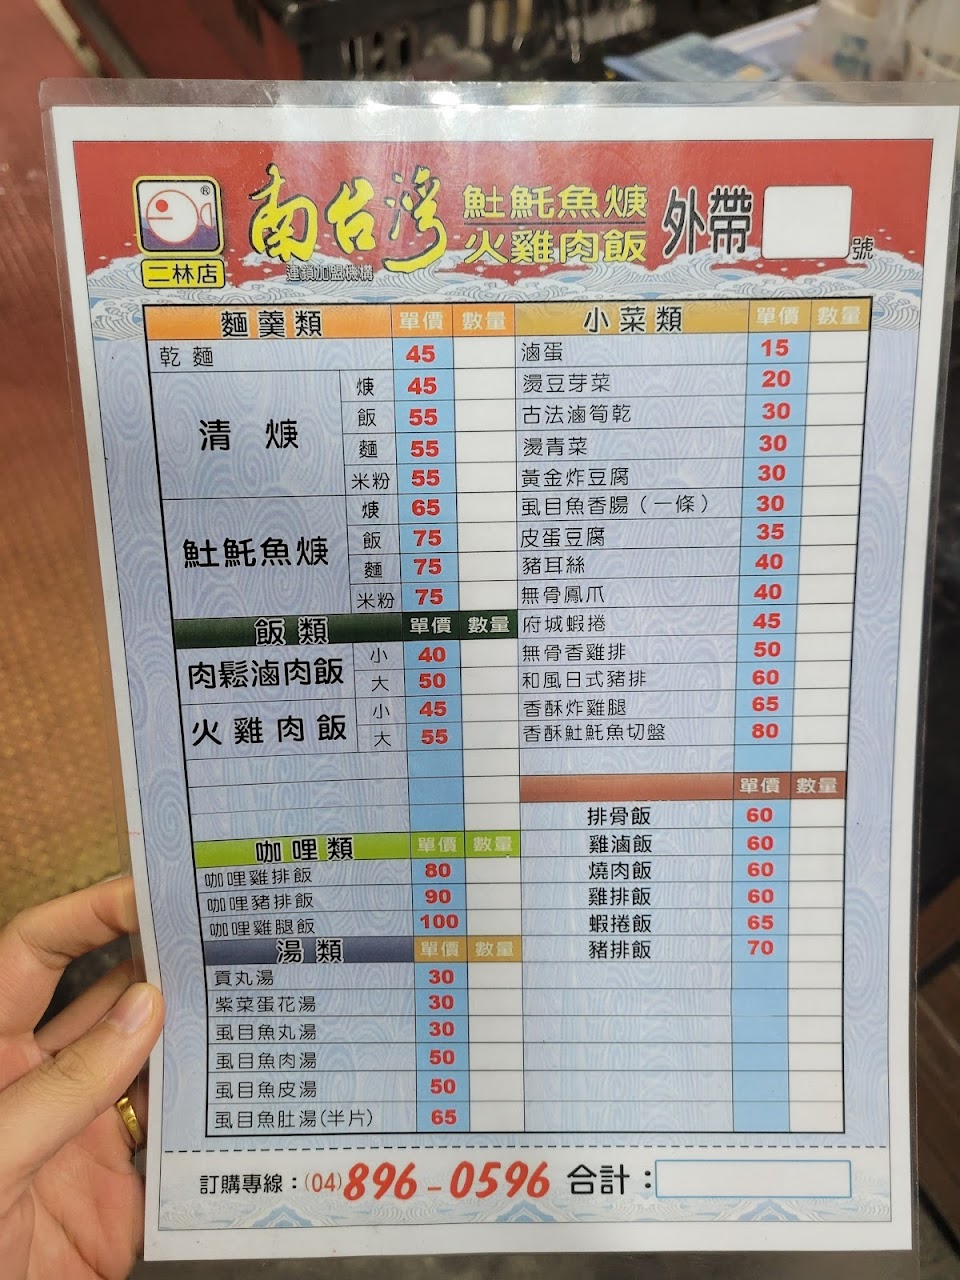 ®
二林店
南台灣
連鎖加盟機構
𩵚魠魚焿
火雞肉飯
外帶
號
麵羹類 單價 數量
乾麵 45
清焿 焿 45
飯 55
麵 55
米粉 55
𩵚魠魚焿 焿 65
飯 75
麵 75
米粉 75
飯類 單價 數量
肉鬆滷肉飯 小 40
大 50
火雞肉飯 小 45
大 55
咖哩類 單價 數量
咖哩雞排飯 80
咖哩豬排飯 90
咖哩雞腿飯 100
湯類 單價 數量
貢丸湯 30
紫菜蛋花湯 30
虱目魚丸湯 30
虱目魚肉湯 50
虱目魚皮湯 50
虱目魚肚湯(半片) 65
小菜類 單價 數量
滷蛋 15
燙豆芽菜 20
古法滷筍乾 30
燙青菜 30
黃金炸豆腐 30
虱目魚香腸(一條) 30
皮蛋豆腐 35
豬耳絲 40
無骨鳳爪 40
府城蝦捲 45
無骨香雞排 50
和風日式豬排 60
香酥炸雞腿 65
香酥𩵚魠魚切盤 80
單價 數量
排骨飯 60
雞滷飯 60
燒肉飯 60
雞排飯 60
蝦捲飯 65
豬排飯 70
訂購專線：(04)896-0596 合計：